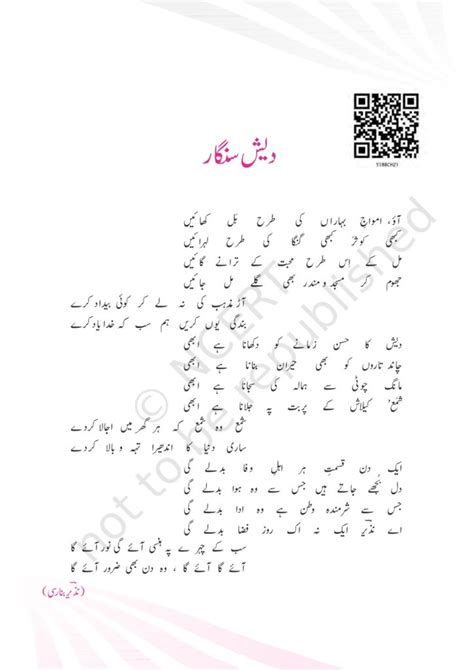 دیش سنگار
آؤ، امواجِ بہاراں کی طرح بَل کھائیں
کبھی کوثر کبھی گنگا کی طرح لہرائیں
مل کے اِس طرح محبت کے ترانے گائیں
جھوم کر مسجد و مندر بھی گلے مل جائیں
آڑ مذہب کی نہ لے کر کوئی بیداد کرے
بندگی یوں کریں ہم سب کہ خدا یاد کرے
دیش کا حسن زمانے کو دکھانا ہے ابھی
چاند تاروں کو بھی حیران بنانا ہے ابھی
مانگ چوٹی سے ہمالہ کی سجانا ہے ابھی
شمع کیلاش کے پربت پہ جلانا ہے ابھی
شمع وہ شمع کہ ہر گھر میں اجالا کردے
ساری دنیا کا اندھیرا تہہ و بالا کردے
ایک دن قسمتِ ہر اہلِ وفا بدلے گی
دل بُجھے جاتے ہیں جس سے وہ ہوا بدلے گی
جس سے شرمندہ وطن ہے وہ ادا بدلے گی
اے نذیرؔ ایک نہ اک روز فضا بدلے گی
سب کے چہرے پہ ہنسی آئے گی نور آئے گا
آئے گا آئے گا ، وہ دن بھی ضرور آئے گا
(نذیر بنارسی)
© NCERT
not to be republished